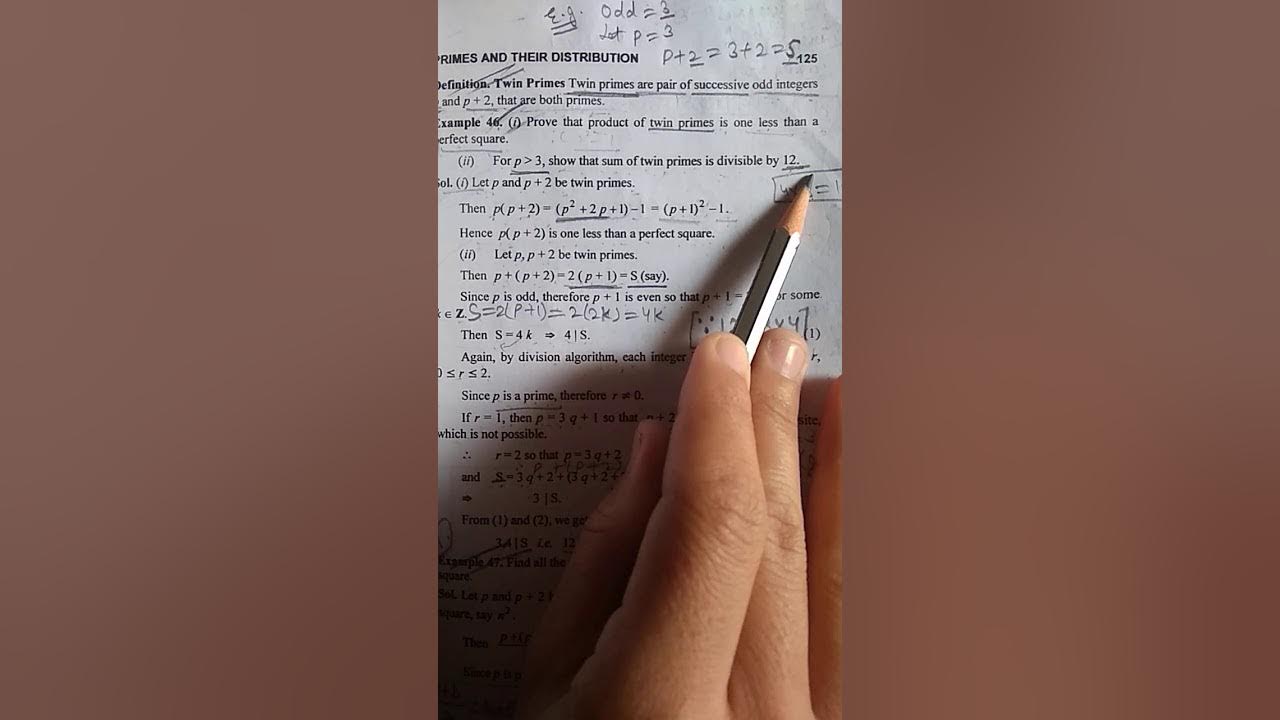 E.g. Odd = 3
Let p = 3
p+2 = 3+2 = 5
PRIMES AND THEIR DISTRIBUTION 125
Definition. Twin Primes Twin primes are pair of successive odd integers
and p + 2, that are both primes.
Example 46. (i) Prove that product of twin primes is one less than a
perfect square.
(ii) For p > 3, show that sum of twin primes is divisible by 12.
Sol. (i) Let p and p + 2 be twin primes.
Then p( p + 2) = (p² + 2 p + 1) – 1 = (p + 1)² – 1.
Hence p( p + 2) is one less than a perfect square.
(ii) Let p, p + 2 be twin primes.
Then p + ( p + 2) = 2 ( p + 1) = S (say).
Since p is odd, therefore p + 1 is even so that p + 1 = or some
k ∈ Z. S=2(P+1)=2(2k)=4k
Then S = 4 k ⇒ 4 | S. (1)
Again, by division algorithm, each integer r,
0 ≤ r ≤ 2.
Since p is a prime, therefore r ≠ 0.
If r = 1, then p = 3 q + 1 so that p + 2 site,
which is not possible.
∴ r = 2 so that p = 3 q + 2
and S = 3 q + 2 + (3 q + 2 +
⇒ 3 | S.
From (1) and (2), we get
3.4 | S i.e. 12
Example 47. Find all the
square.
Sol. Let p and p + 2
square, say n².
Then
Since p is